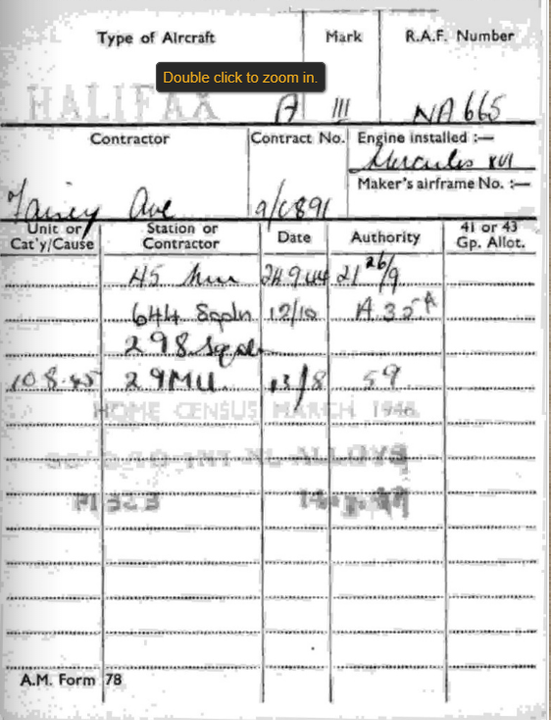 Type of Aircraft Mark R.A.F. Number
Double click to zoom in.
HALIFAX A III NA665
Contractor Contract No. Engine installed :—
Mercules XVI
Maker's airframe No. :—
Fairey Ave 9/C891
Unit or Cat'y/Cause Station or Contractor Date Authority 41 or 43 Gp. Allot.
45 Mu 24.9.44 21 26/9
644 Sqdn 12/10 A.35A
298 Sqdn
10.8.45 29MU 13/8 59
HOME CENSUS MARCH 1946
INT ALLOYS
A.M. Form 78